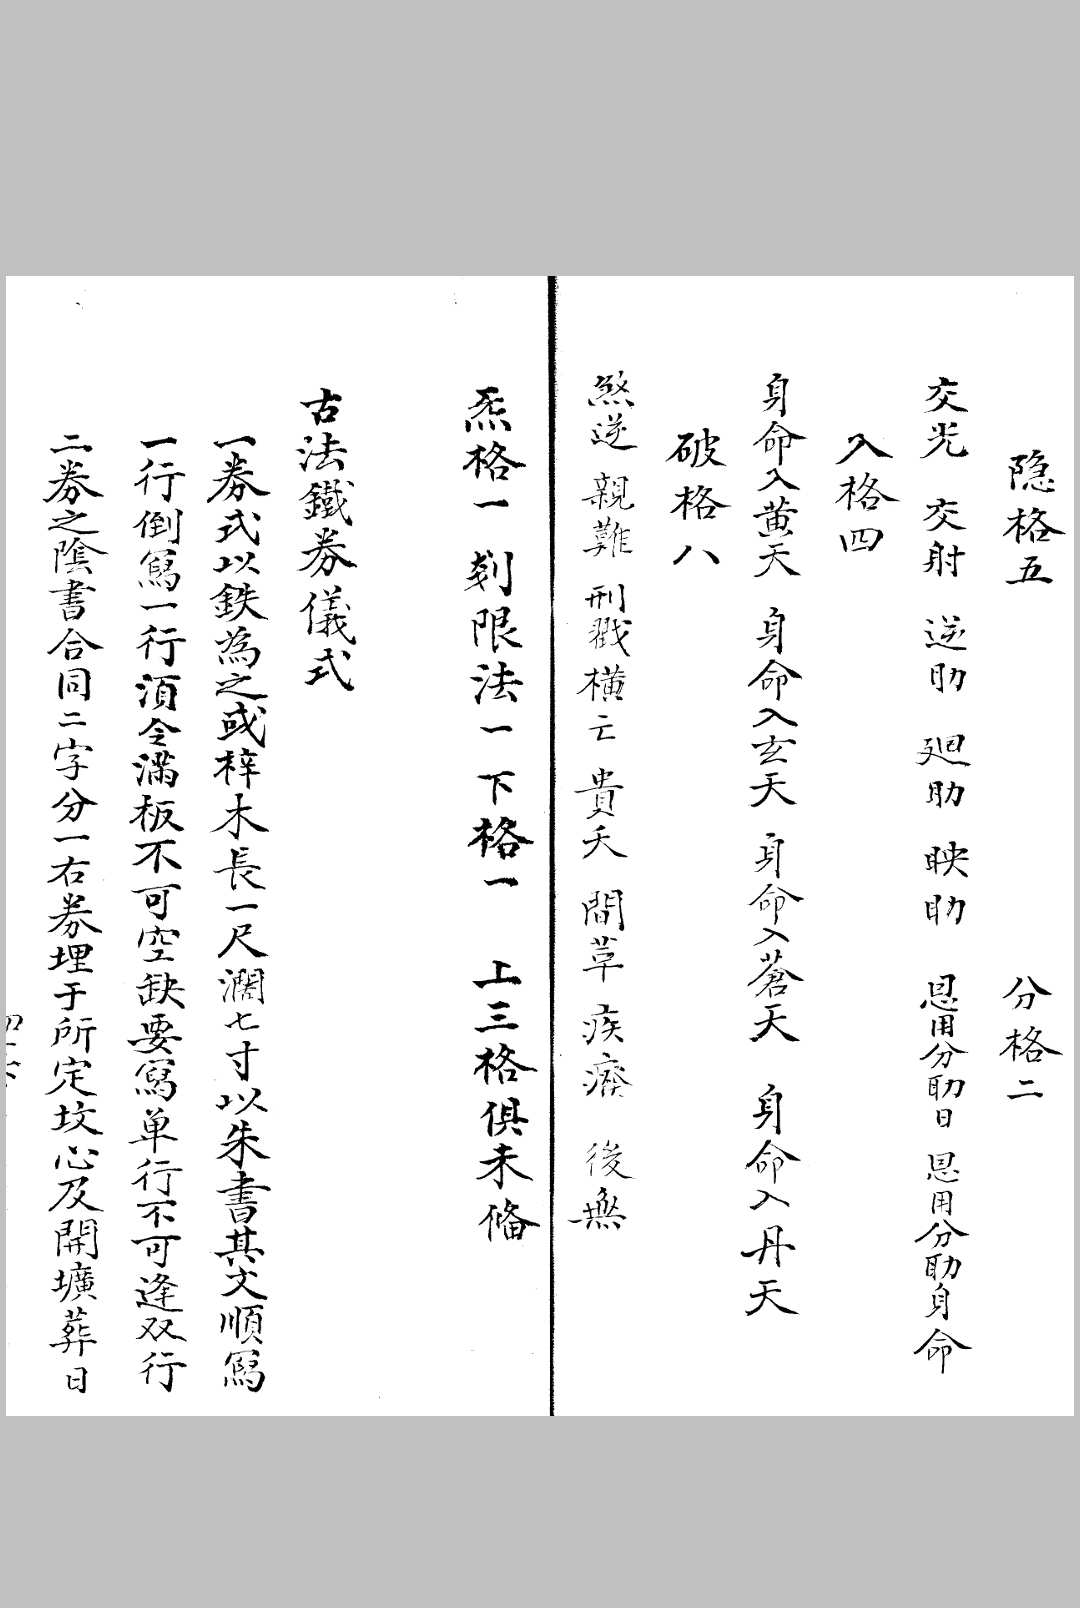 隐格五　分格二
交光　交射　逆助　廻助　映助　恩用分助日　恩用分助身命
入格四
身命入黄天　身命入玄天　身命入蒼天　身命入丹天
破格八
煞逆　親難　刑戮橫亡　貴夭　間草　疾癈　後無
炁格一　刻限法一　下格一　上三格俱未脩
古法鐵券儀式
一券式以鉄為之或梓木長一尺濶七寸以朱書其文順寫
一行倒寫一行須令滿板不可空缺要寫单行不可逢双行
二券之陰書合同二字分一右券埋于所定坟心及開壙葬日